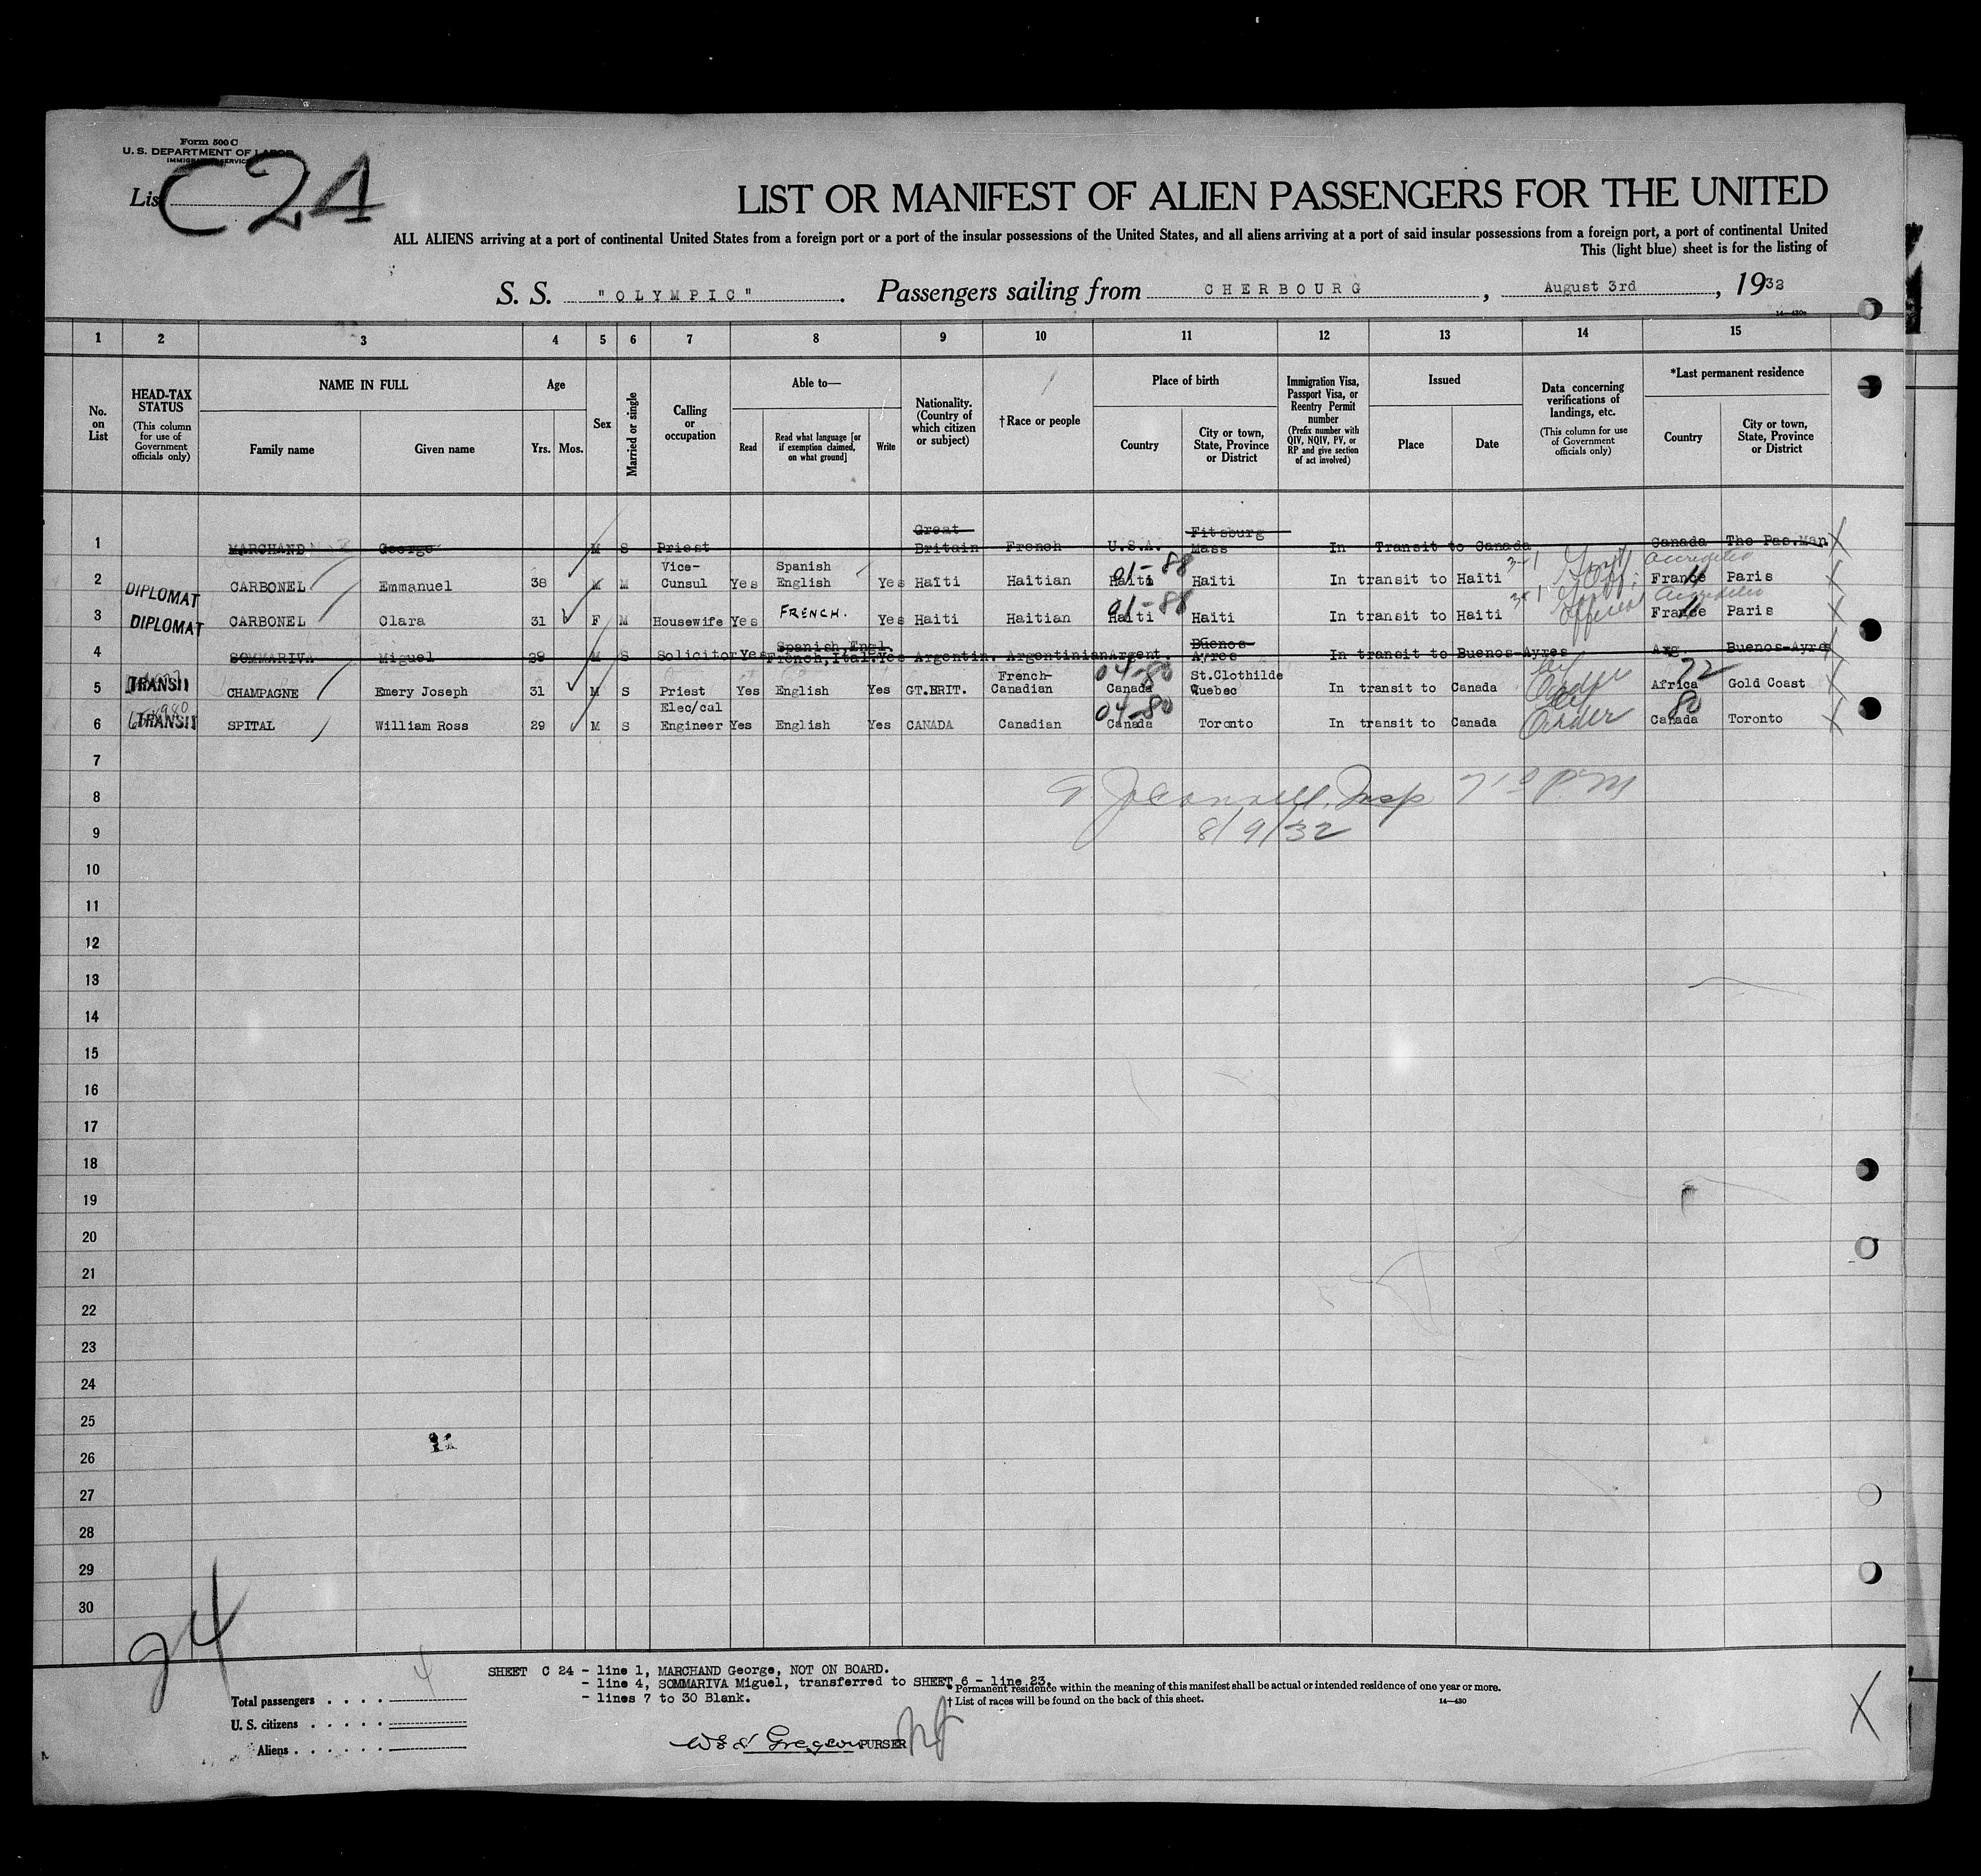 Form 500 C
U. S. DEPARTMENT OF LABOR
IMMIGRATION SERVICE
List C24
LIST OR MANIFEST OF ALIEN PASSENGERS FOR THE UNITED
ALL ALIENS arriving at a port of continental United States from a foreign port or a port of the insular possessions of the United States, and all aliens arriving at a port of said insular possessions from a foreign port, a port of continental United
This (light blue) sheet is for the listing of
S. S. "OLYMPIC". Passengers sailing from CHERBOURG, August 3rd, 1932
14—430
1 2 3 4 5 6 7 8 9 10 11 12 13 14 15
No. on List
HEAD-TAX STATUS (This column for use of Government officials only)
NAME IN FULL
Family name Given name
Age
Yrs. Mos.
Sex
Married or single
Calling or occupation
Able to—
Read Read what language [or if exemption claimed, on what ground] Write
Nationality. (Country of which citizen or subject)
†Race or people
Place of birth
Country City or town, State, Province or District
Immigration Visa, Passport Visa, or Reentry Permit number (Prefix number with QIV, NQIV, PV, or RP and give section of act involved)
Issued
Place Date
Data concerning verifications of landings, etc. (This column for use of Government officials only)
*Last permanent residence
Country City or town, State, Province or District
1 MARCHAND George M S Priest Great Britain French U.S.A. Fitsburg Mass In Transit to Canada Canada The Pas.Man
2 DIPLOMAT CARBONEL Emmanuel 38 M M Vice-Cunsul Yes Spanish English Yes Haïti Haitian Haïti 91-88 Haïti In transit to Haïti 3-1 Govt Off. accredited France Paris
3 DIPLOMAT CARBONEL Clara 31 F M Housewife Yes FRENCH. Yes Haïti Haitian Haïti 91-88 Haïti In transit to Haïti 3-1 Official accredited France Paris
4 SOMMARIVA Miguel 29 M S Solicitor Yes Spanish,Engl. French,Ital. Yes Argentin. Argentinian Argent. Buenos-Ayres In transit to Buenos-Ayres Arg. Buenos-Ayres
5 TRANSIT CHAMPAGNE Emery Joseph 31 M S Priest Yes English Yes GT.BRIT. French-Canadian Canada 04-80 St.Clothilde Quebec In transit to Canada Africa 72 Gold Coast
6 TRANSIT SPITAL William Ross 29 M S Elec/cal Engineer Yes English Yes CANADA Canadian Canada 04-80 Toronto In transit to Canada Canada 80 Toronto
7
8 Insp PM
9 8/9/32
10
11
12
13
14
15
16
17
18
19
20
21
22
23
24
25
26
27
28
29
30
24
SHEET C 24 - line 1, MARCHAND George, NOT ON BOARD.
- line 4, SOMMARIVA Miguel, transferred to SHEET 6 - line 23.
- lines 7 to 30 Blank.
* Permanent residence within the meaning of this manifest shall be actual or intended residence of one year or more.
† List of races will be found on the back of this sheet.
14—430
Total passengers . . . . 4
U. S. citizens . . . . .
Aliens . . . . . .
PURSER